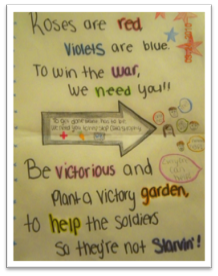 Roses are red
Violets are blue.
To win the war,
we need you!!
Be victorious and
Plant a victory garden,
to help the soldiers
So they're not Starvin'!